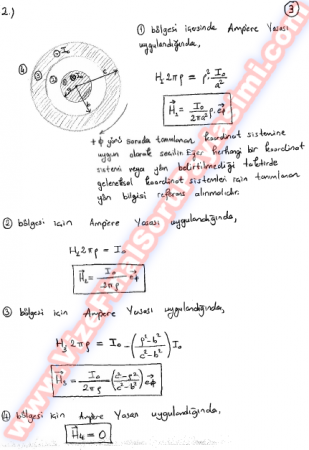 2.)
③
① bölgesi içerisinde Ampere Yasası
uygulandığında,
H₁ 2πρ = ρ² I₀/a²
H⃗₁ = I₀/2πa² ρ. e⃗φ
④ ③ ② ① I₀ a b c
+φ yönü soruda tanımlanan koordinat sistemine
uygun olarak seçilir. Eğer herhangi bir koordinat
sistemi veya yön belirtilmediği taktirde
geleneksel koordinat sistemleri için tanımlanan
yön bilgisi referans alınmalıdır.
② bölgesi için Ampere Yasası uygulandığında,
H₂ 2πρ = I₀
H⃗₂ = I₀/2πρ e⃗φ
③ bölgesi için Ampere Yasası uygulandığında,
H₃ 2πρ = I₀ - (ρ²-b²/c²-b²) I₀
H⃗₃ = I₀/2πρ (c²-ρ²/c²-b²) e⃗φ
④ bölgesi için Ampere Yasası uygulandığında,
H⃗₄ = 0
www.VizeFinalSoruCevapBilimi.com